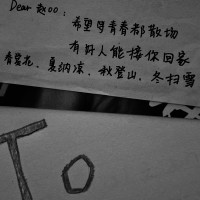 Dear 赵〇〇:
希望等青春都散场
有好人能接你回家
春赏花、夏纳凉、秋登山、冬扫雪
To